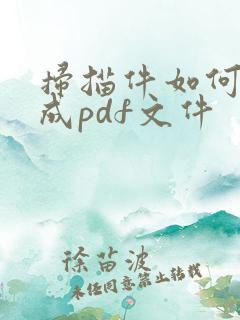 掃描件如何
成pdf文件
徐苗波
未经同意禁止转载